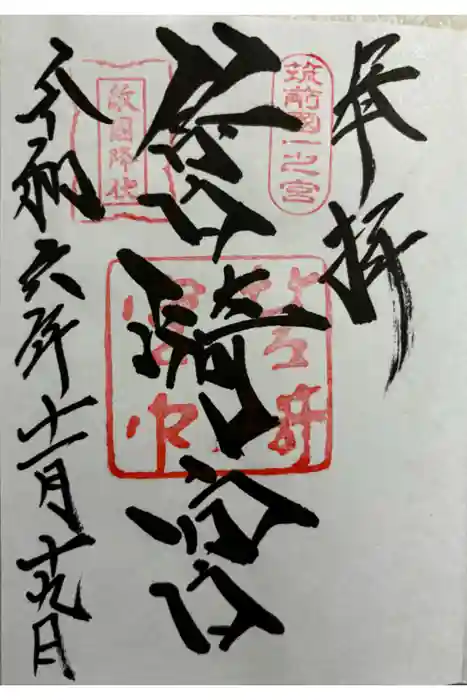 奉拝
筑前國一之宮
筥崎宮
敵國降伏
令和六年十一月十九日